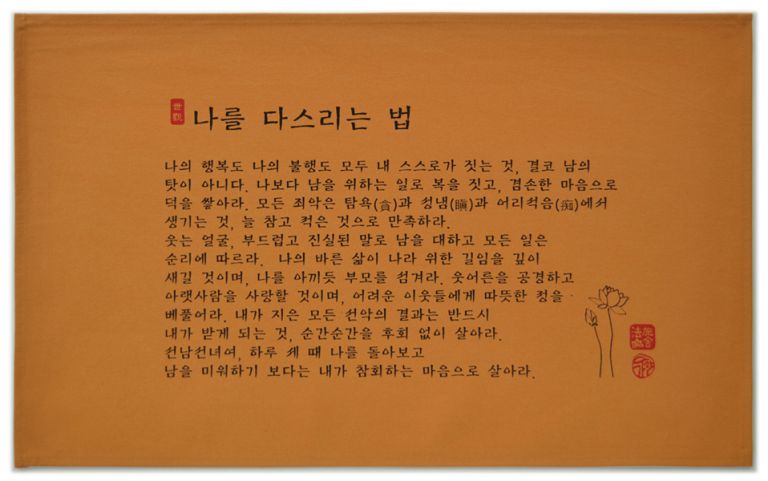 世觀
나를 다스리는 법
나의 행복도 나의 불행도 모두 내 스스로가 짓는 것, 결코 남의
탓이 아니다. 나보다 남을 위하는 일로 복을 짓고, 겸손한 마음으로
덕을 쌓아라. 모든 죄악은 탐욕(貪)과 성냄(瞋)과 어리석음(痴)에서
생기는 것, 늘 참고 적은 것으로 만족하라.
웃는 얼굴, 부드럽고 진실된 말로 남을 대하고 모든 일은
순리에 따르라. 나의 바른 삶이 나라 위한 길임을 깊이
새길 것이며, 나를 아끼듯 부모를 섬겨라. 웃어른을 공경하고
아랫사람을 사랑할 것이며, 어려운 이웃들에게 따뜻한 정을
베풀어라. 내가 지은 모든 선악의 결과는 반드시
내가 받게 되는 것, 순간순간을 후회 없이 살아라.
선남선녀여, 하루 세 때 나를 돌아보고
남을 미워하기 보다는 내가 참회하는 마음으로 살아라.